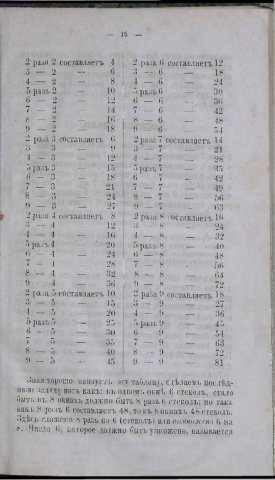 — 15 —
2 раза 2 составляетъ 4
3 — 2 — 6
4 — 2 — 8
5 разъ 2 — 10
6 — 2 — 12
7 — 2 — 14
8 — 2 — 16
9 — 2 — 18
2 раза 3 составляетъ 6
3 — 3 — 9
4 — 3 — 12
5 разъ 3 — 15
6 — 3 — 18
7 — 3 — 21
8 — 3 — 24
9 — 3 — 27
2 раза 4 составляетъ 8
3 — 4 — 12
4 — 4 — 16
5 разъ 4 — 20
6 — 4 — 24
7 — 4 — 28
8 — 4 — 32
9 — 4 — 36
2 раза 5 составляетъ 10
3 — 5 — 15
4 — 5 — 20
5 разъ 5 — 25
6 — 5 — 30
7 — 5 — 35
8 — 5 — 40
9 — 5 — 45
2 раза 6 составляетъ 12
3 — 6 — 18
4 — 6 — 24
5 разъ 6 — 30
6 — 6 — 36
7 — 6 — 42
8 — 6 — 48
9 — 6 — 54
2 раза 7 составляетъ 14
3 — 7 — 21
4 — 7 — 28
5 разъ 7 — 35
6 — 7 — 42
7 — 7 — 49
8 — 7 — 56
9 — 7 — 63
2 раза 8 составляетъ 16
3 — 8 — 24
4 — 8 — 32
5 разъ 8 — 40
6 — 8 — 48
7 — 8 — 56
8 — 8 — 64
9 — 8 — 72
2 раза 9 составляетъ 18
3 — 9 — 27
4 — 9 — 36
5 разъ 9 — 45
6 — 9 — 54
7 — 9 — 63
8 — 9 — 72
9 — 9 — 81
Зная хорошо наизусть эту таблицу, сдѣлаемъ послѣд-
нюю задачу вотъ какъ: въ одномъ окнѣ 6 стеколъ, стало
быть въ 8 окнахъ должно быть 8 разъ 6 стеколъ; но такъ
какъ 8 разъ 6 составляетъ 48, то въ 8 окнахъ 48 стеколъ.
Здѣсь сложено 8 разъ по 6 (стеколъ) или помножено 6 на
8. Число 6, которое должно быть умножено, называется